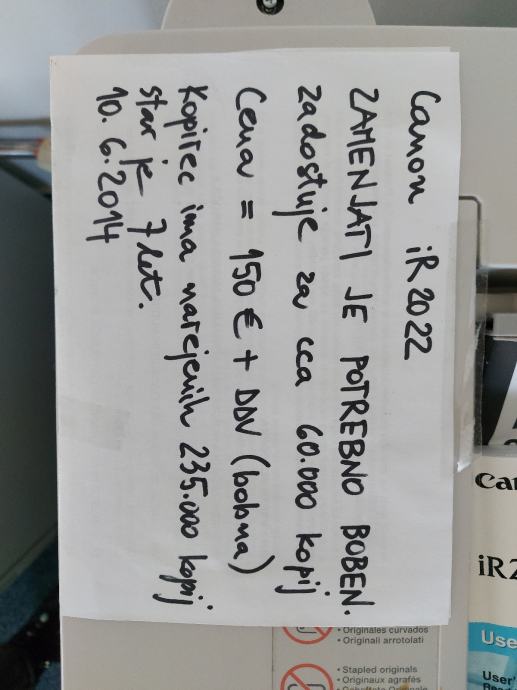 Canon iR 2022
ZAMENJATI JE POTREBNO BOBEN.
zadostuje za cca 60.000 kopij
Cena = 150 € + DDV (bobna)
Kopirec ima narejenih 235.000 kopij
star je 7 let.
10. 6. 2014
Originales curvados
• Originali arrotolati
• Stapled originals
• Originaux agrafés
Can
iR2
Use
User'